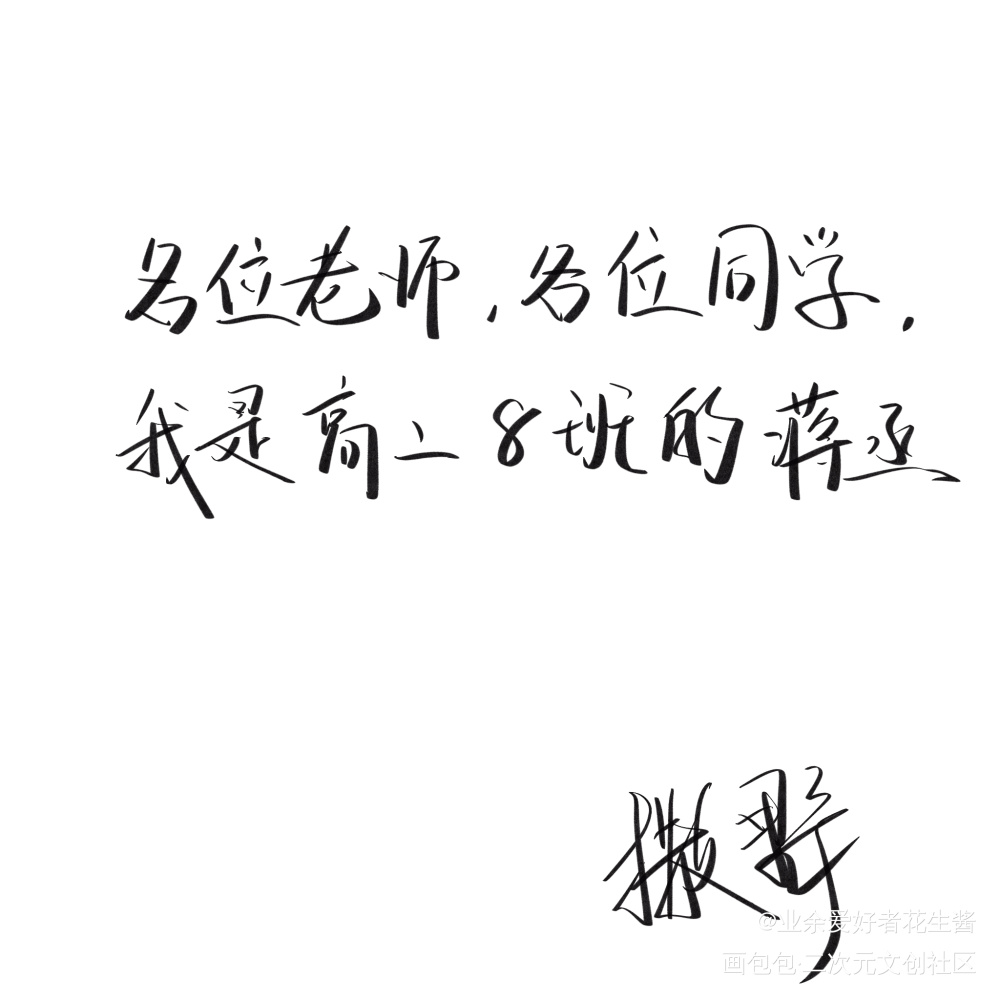 各位老师,各位同学,
我是高二8班的蒋丞
撒野
@业余爱好者花生酱
画包包·二次元文创社区